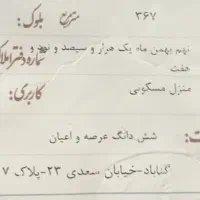 ۳۶۷ مترمربع بلوک:
نهم بهمن ماه یک هزار و سیصد و نود و هفت
شماره دفتر املاک
منزل مسکونی کاربری:
شش دانگ عرصه و اعیان
گناباد-خیابان سعدی ۲۳-پلاک ۷